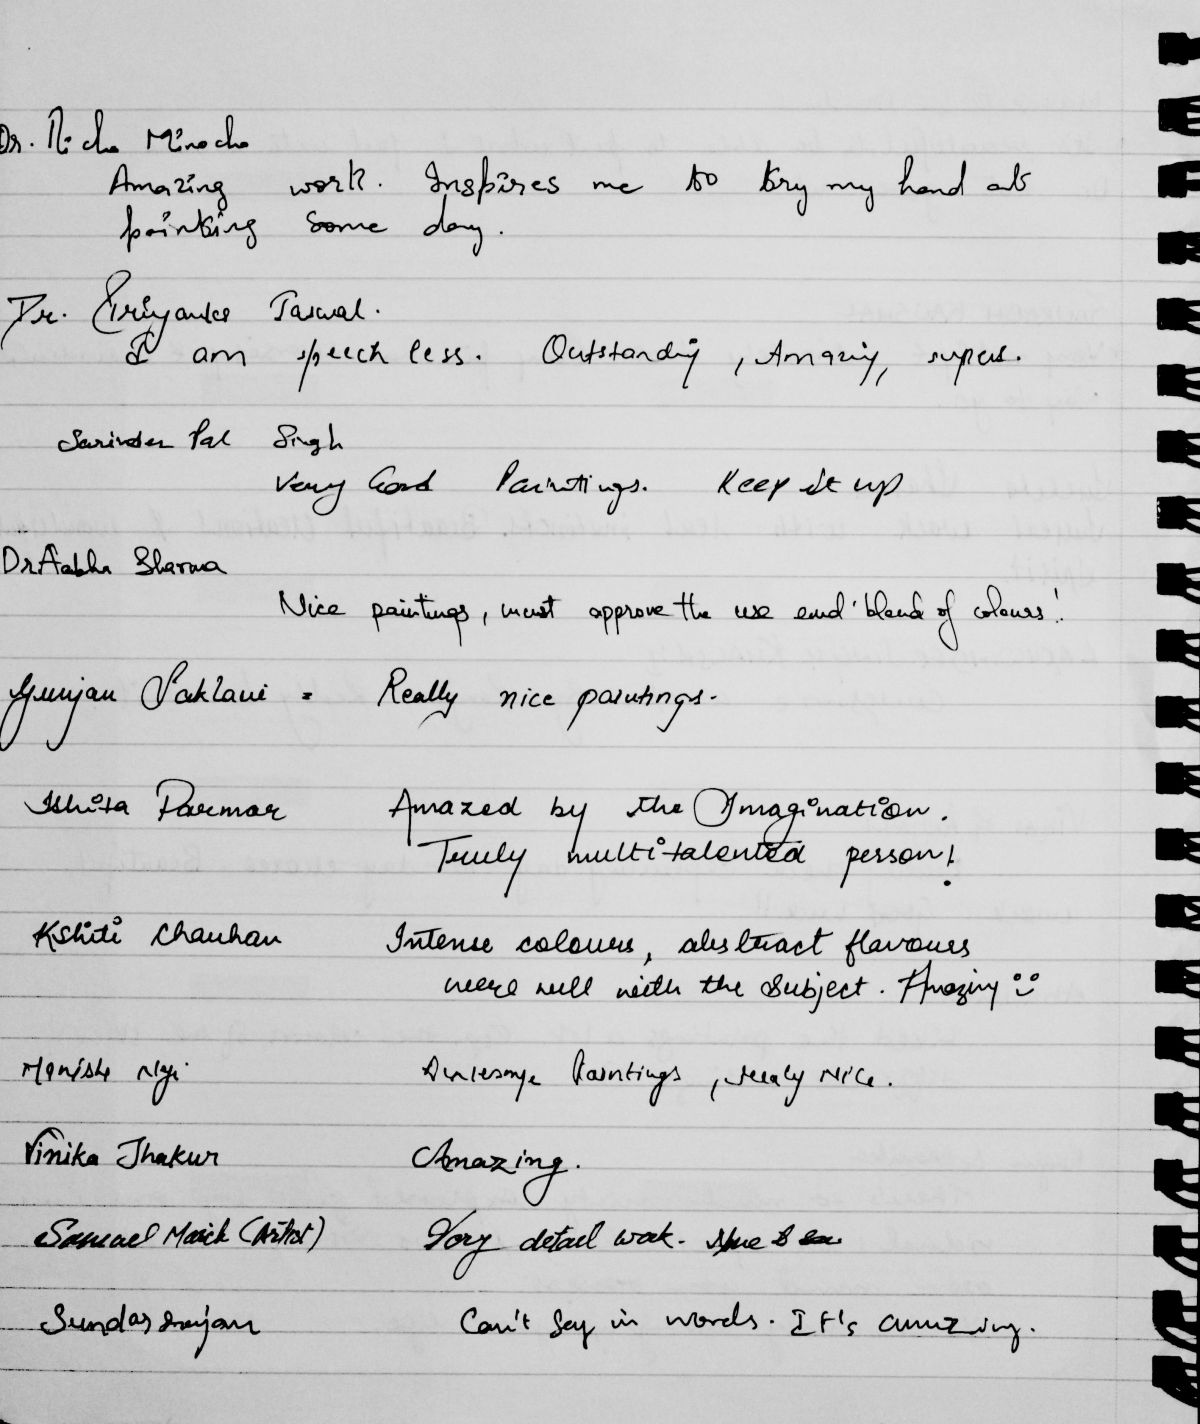 Dr. Richa Minocha
Amazing work. Inspires me to try my hand at
painting some day.
Dr. Priyanka Jaswal.
I am speechless. Outstanding, Amazing, super.
Surinder Pal Singh
Very Good Paintings. Keep it up
Dr Aabha Sharma
Nice paintings, must approve the use and blend of colours!
Gunjan Saklani = Really nice paintings.
Ishita Parmar Amazed by the Imagination.
Truly multitalented person!
Kshiti Chauhan Intense colours, abstract flavours
were well with the subject. Amazing
Manisha Negi Awesome Paintings, really Nice.
Vinika Thakur Amazing.
Samuel (Artist) Very detail work.
Can't Say in words. It's amazing.